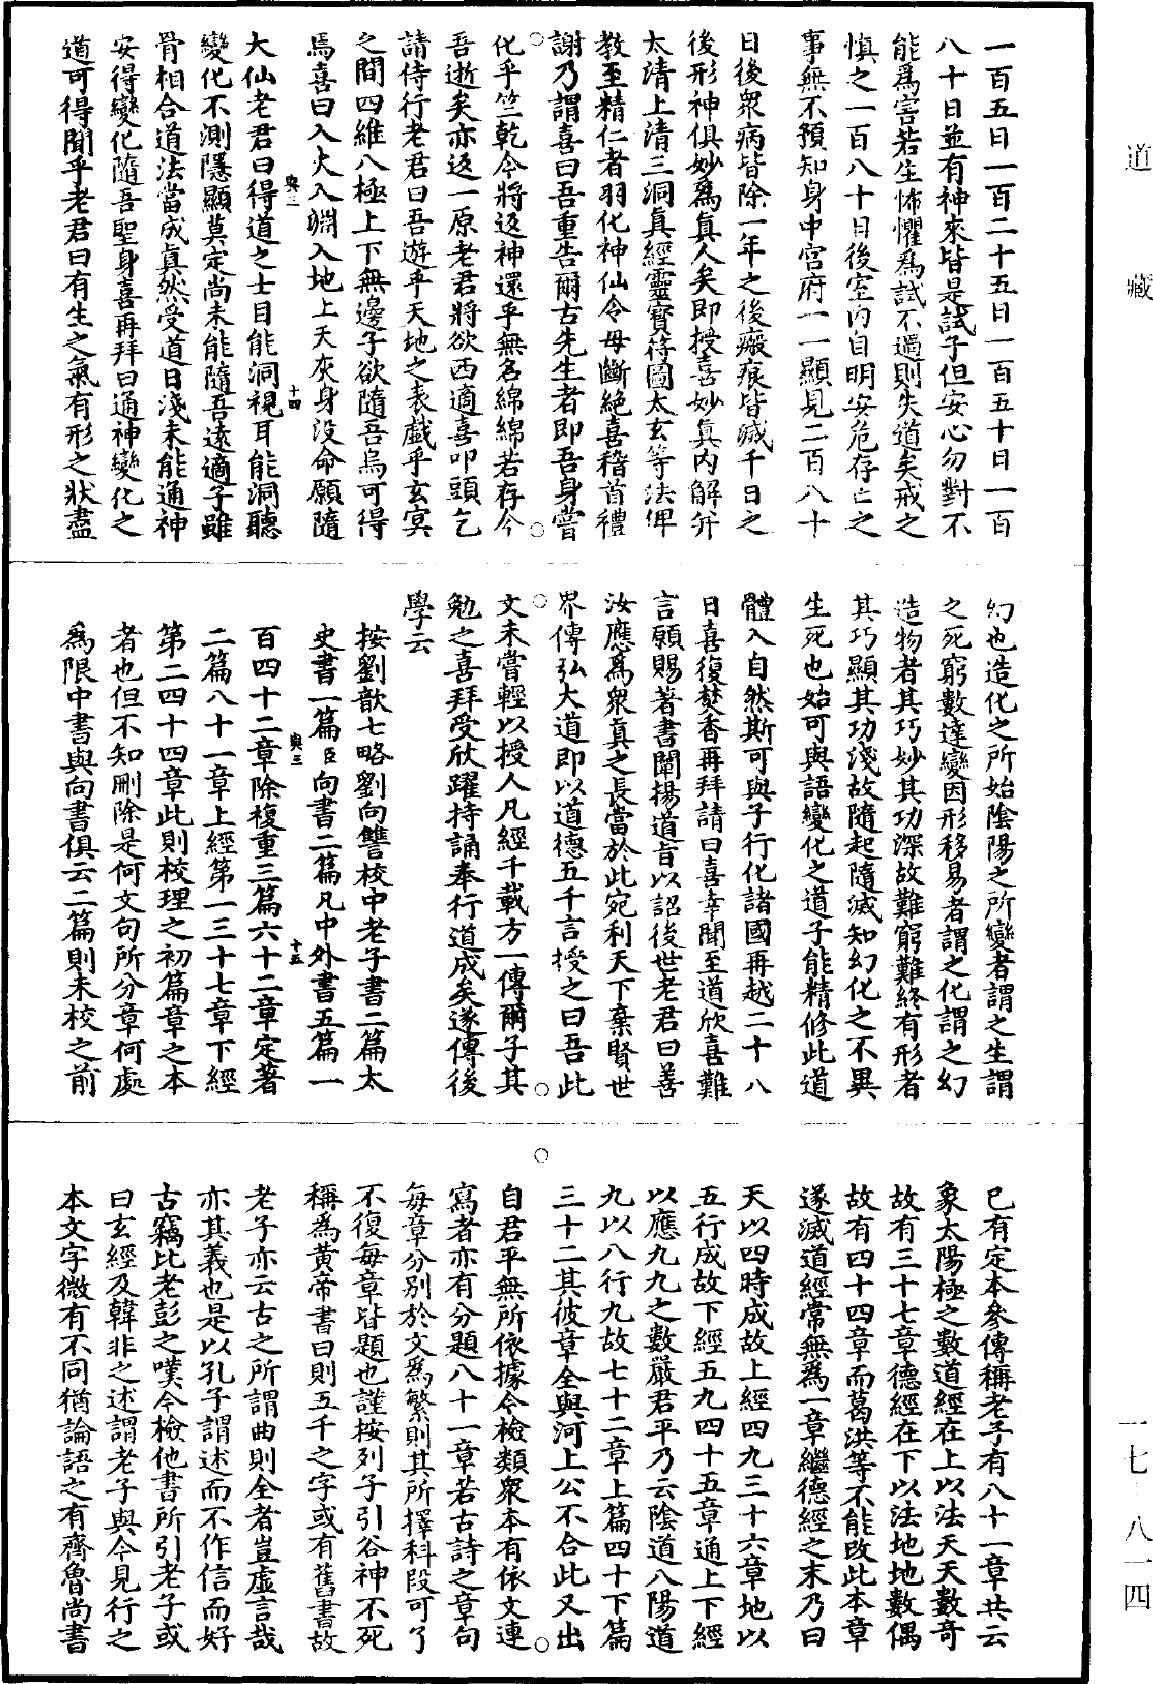 道藏
一百五日一百二十五日一百五十日一百
八十日並有神來皆是試子但安心勿對不
能爲害若生怖懼爲試不過則失道矣戒之
慎之一百八十日後室内自明安危存亡之
事無不預知身中宫府一一顯見二百八十
日後衆病皆除一年之後瘢痕皆滅千日之
後形神俱妙爲真人矣即授喜妙真内解并
太清上清三洞真經靈寳符圖太玄等法俾
教至精仁者羽化神仙令毋斷絶喜稽首禮
謝乃謂喜曰吾重告爾古先生者即吾身嘗
化乎竺乾今將返神還乎無名綿綿若存今
吾逝矣亦返一原老君將欲西適喜叩頭乞
請侍行老君曰吾遊乎天地之表戲乎玄冥
之間四維八極上下無邊子欲隨吾烏可得
焉喜曰入火入淵入地上天灰身没命願隨
典二
十四
大仙老君曰得道之士目能洞視耳能洞聽
變化不測隱顯莫定尚未能隨吾遠適子雖
骨相合道法當成真然受道日淺未能通神
安得變化隨吾聖身喜再拜曰通神變化之
道可得聞乎老君曰有生之氣有形之狀盡
幻也造化之所始隂陽之所變者謂之生謂
之死窮數達變因形移易者謂之化謂之幻
造物者其巧妙其功深故難窮難終有形者
其巧顯其功淺故隨起隨滅知幻化之不異
生死也始可與語變化之道子能精修此道
體入自然斯可與子行化諸國再越二十八
日喜復焚香再拜請曰喜幸聞至道欣喜難
言願賜著書闡揚道旨以詔後世老君曰善
汝應爲衆真之長當於此宛利天下棄賢世
界傳弘大道即以道德五千言授之曰吾此
文未嘗輕以授人凡經千載方一傳爾子其
勉之喜拜受欣躍持誦奉行道成矣遂傳後
學云
按劉歆七略劉向讐校中老子書二篇太
史書一篇臣向書二篇凡中外書五篇一
典三
十五
百四十二章除複重三篇六十二章定著
二篇八十一章上經第一三十七章下經
第二四十四章此則校理之初篇章之本
者也但不知刪除是何文句所分章何處
爲限中書與向書俱云二篇則未校之前
已有定本參傳稱老子有八十一章共云
象太陽極之數道經在上以法天天數竒
故有三十七章德經在下以法地地數偶
故有四十四章而葛洪等不能改此本章
遂滅道經常無爲一章繼德經之末乃曰
天以四時成故上經四九三十六章地以
五行成故下經五九四十五章通上下經
以應九九之數嚴君平乃云陰道八陽道
九以八行九故七十二章上篇四十下篇
三十二其彼章全與河上公不合此又出
自君平無所依據今檢類衆本有依文連
寫者亦有分題八十一章若古詩之章句
每章分别於文爲繁則其所擇科段可了
不復每章皆題也謹按列子引谷神不死
稱爲黄帝書曰則五千之字或有舊書故
老子亦云古之所謂曲則全者豈虚言哉
亦其義也是以孔子謂述而不作信而好
古竊比老彭之嘆今檢他書所引老子或
曰玄經及韓非之述謂老子與今見行之
本文字微有不同猶論語之有齊魯尚書
一七—八一四